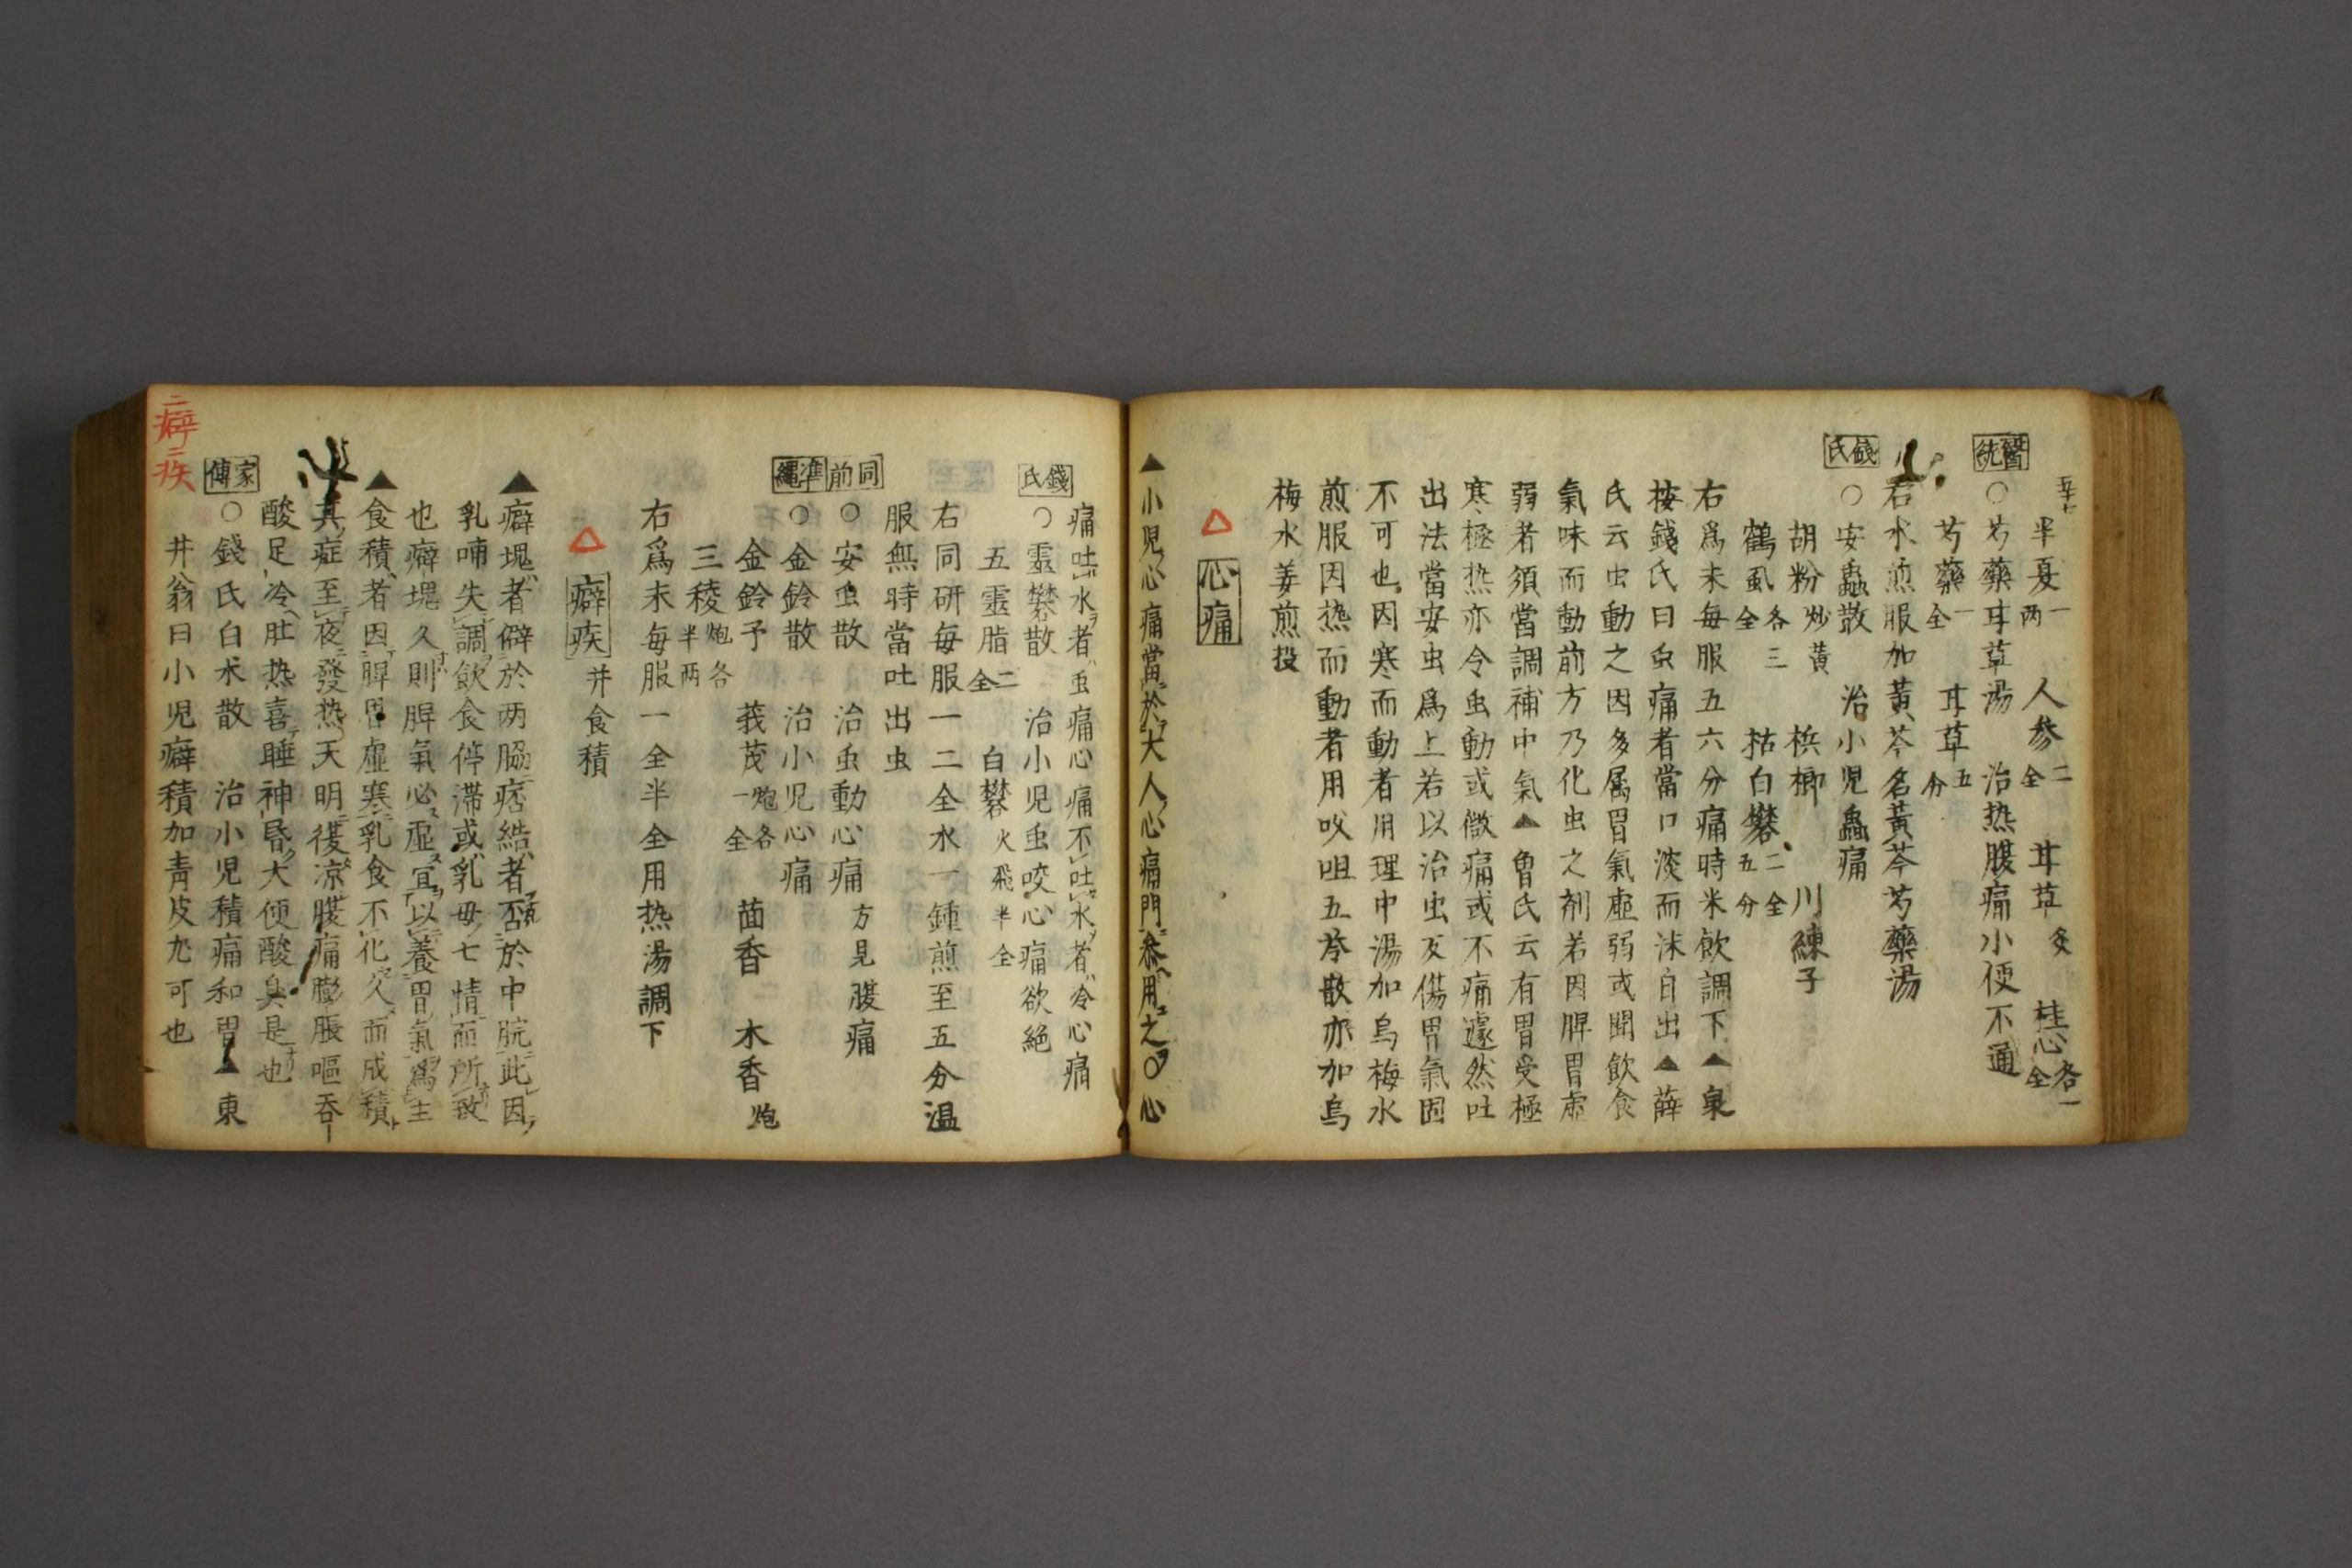 半夏一两 人参二全 甘草炙 桂心各一全
醫統
○芍藥甘草湯 治热腹痛小便不通
芍藥一全 甘草五分
右水煎服加黄芩名黄芩芍藥湯
錢氏
○安蟲散 治小児蟲痛
胡粉炒黄 梹榔 川練子
鶴虱各三全 枯白礬二全五分
右爲末每服五六分痛時米飲調下▲
按錢氏曰虫痛者當口淡而沫自出▲薛
氏云虫動之因多属胃氣虚弱或聞飲食
氣味而動前方乃化虫之剤若因脾胃虚
弱者須當調補中氣▲曽氏云有胃受極
寒極热亦令虫動或微痛或不痛遽然吐
出法當安虫爲上若以治虫反傷胃氣固
不可也因寒而動者用理中湯加烏梅水
煎服因热而動者用㕮咀五苓散亦加烏
梅水姜煎投
△心痛
▲小児心痛當於大人心痛門参用之○心
痛吐水者虫痛心痛不吐水者冷心痛
錢氏
○靈礬散 治小児虫咬心痛欲絶
五靈脂二全 白礬火飛半全
右同研每服一二全水一鍾煎至五分温
服無時當吐出虫
同前
○安虫散 治虫動心痛 方見腹痛
準繩
○金鈴散 治小児心痛
金鈴子 莪茂炮各一全 茴香 木香炮
三稜炮各半两
右爲末每服一全半全用热湯調下
△癖疾 并食積
▲癖塊者僻於两脇痞結者否於中脘此因
乳哺失調飲食停滞或乳母七情而所致
也癖塊久則脾氣必虚宜以養胃氣爲主
▲食積者因脾胃虚寒乳食不化久而成積
其症至夜發热天明復凉腹痛膨脹嘔吞
酸足冷肚热喜睡神昏大便酸臭是也
家傳
○錢氏白术散 治小児積痛和胃▲東
井翁曰小児癖積加青皮尤可也
癖疾